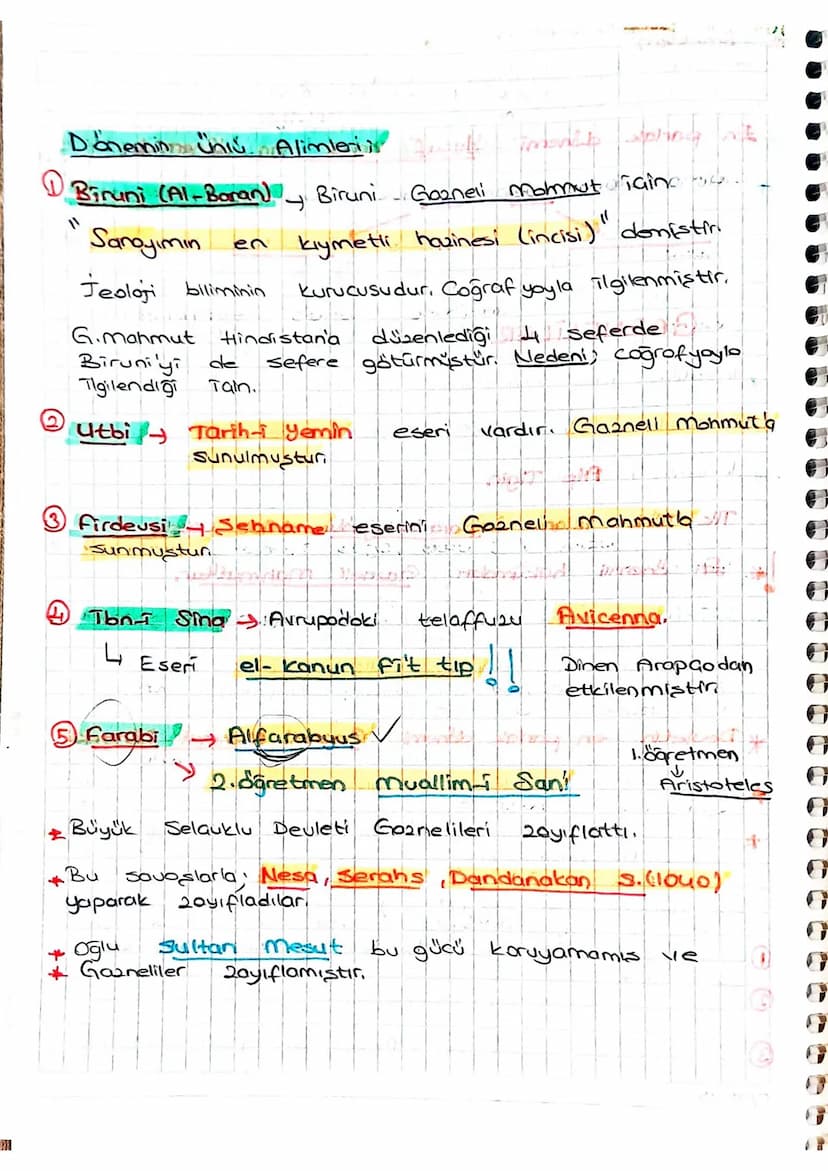 Dönemin Ünlü Alimleri:
① Biruni (Al-Baran) → Biruni Gazneli Mahmut için
" Sarayımın en kıymetli hazinesi (incisi)" demiştir.
Jeoloji biliminin kurucusudur. Coğrafyayla ilgilenmiştir.
G.mahmut Hindistan'a düzenlediği 4 seferde
Biruni'yi de sefere götürmüştür. Nedeni; coğrafyayla
ilgilendiği için.
② Utbi → Tarih-i Yemin eseri vardır. Gazneli Mahmut'a
sunulmuştur.
③ Firdevsi → Şehname eserini Gazneli Mahmut'a
sunmuştur.
④ İbn-i Sina → Avrupadaki telaffuzu Avicenna.
↳ Eseri el-kanun fi't tıp!! Dinen Arapçadan
etkilenmiştir.
⑤ Farabi → Alfarabyus ✓
→ 2.öğretmen muallim-i Sani
1.öğretmen
↓
Aristoteles
* Büyük Selçuklu Devleti Gaznelileri zayıflattı.
* Bu savaşlarla; Nesa, Serahs, Dandanakan S.(1040)
yaparak zayıfladılar.
* Oğlu Sultan Mesut bu gücü koruyamamış ve
* Gazneliler zayıflamıştır.